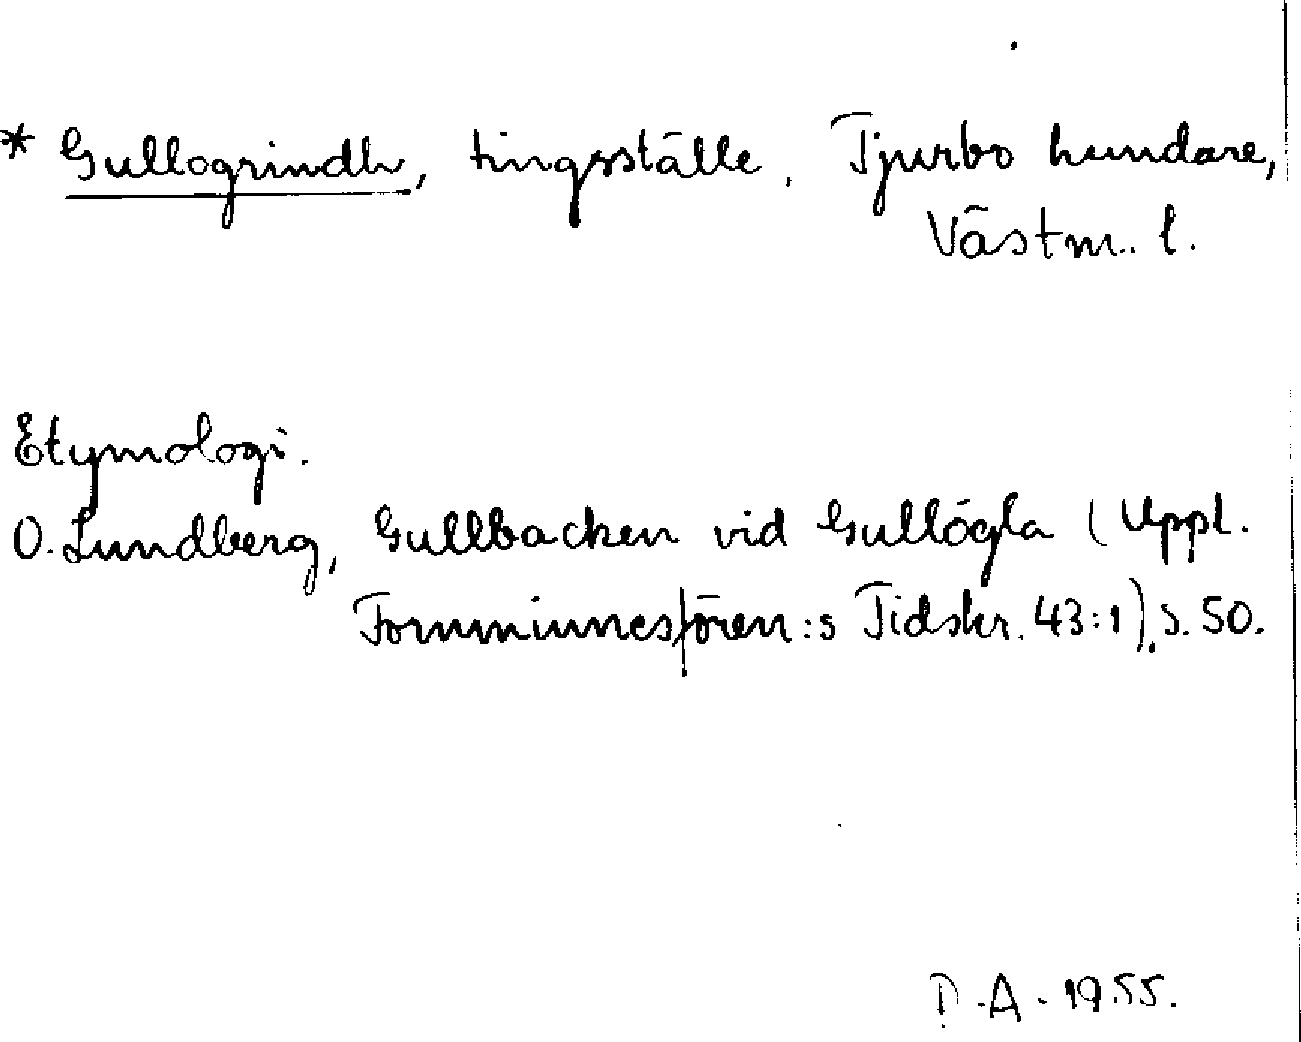 * Gullogrindh, tingsställe, Tjurbo hundare,
Västm. l.
Etymologi.
O. Lundberg, Gullbacken vid Gullögla (Uppl.
Fornminnesfören:s Tidskr. 43:1). s. 50.
P. A. 1955.